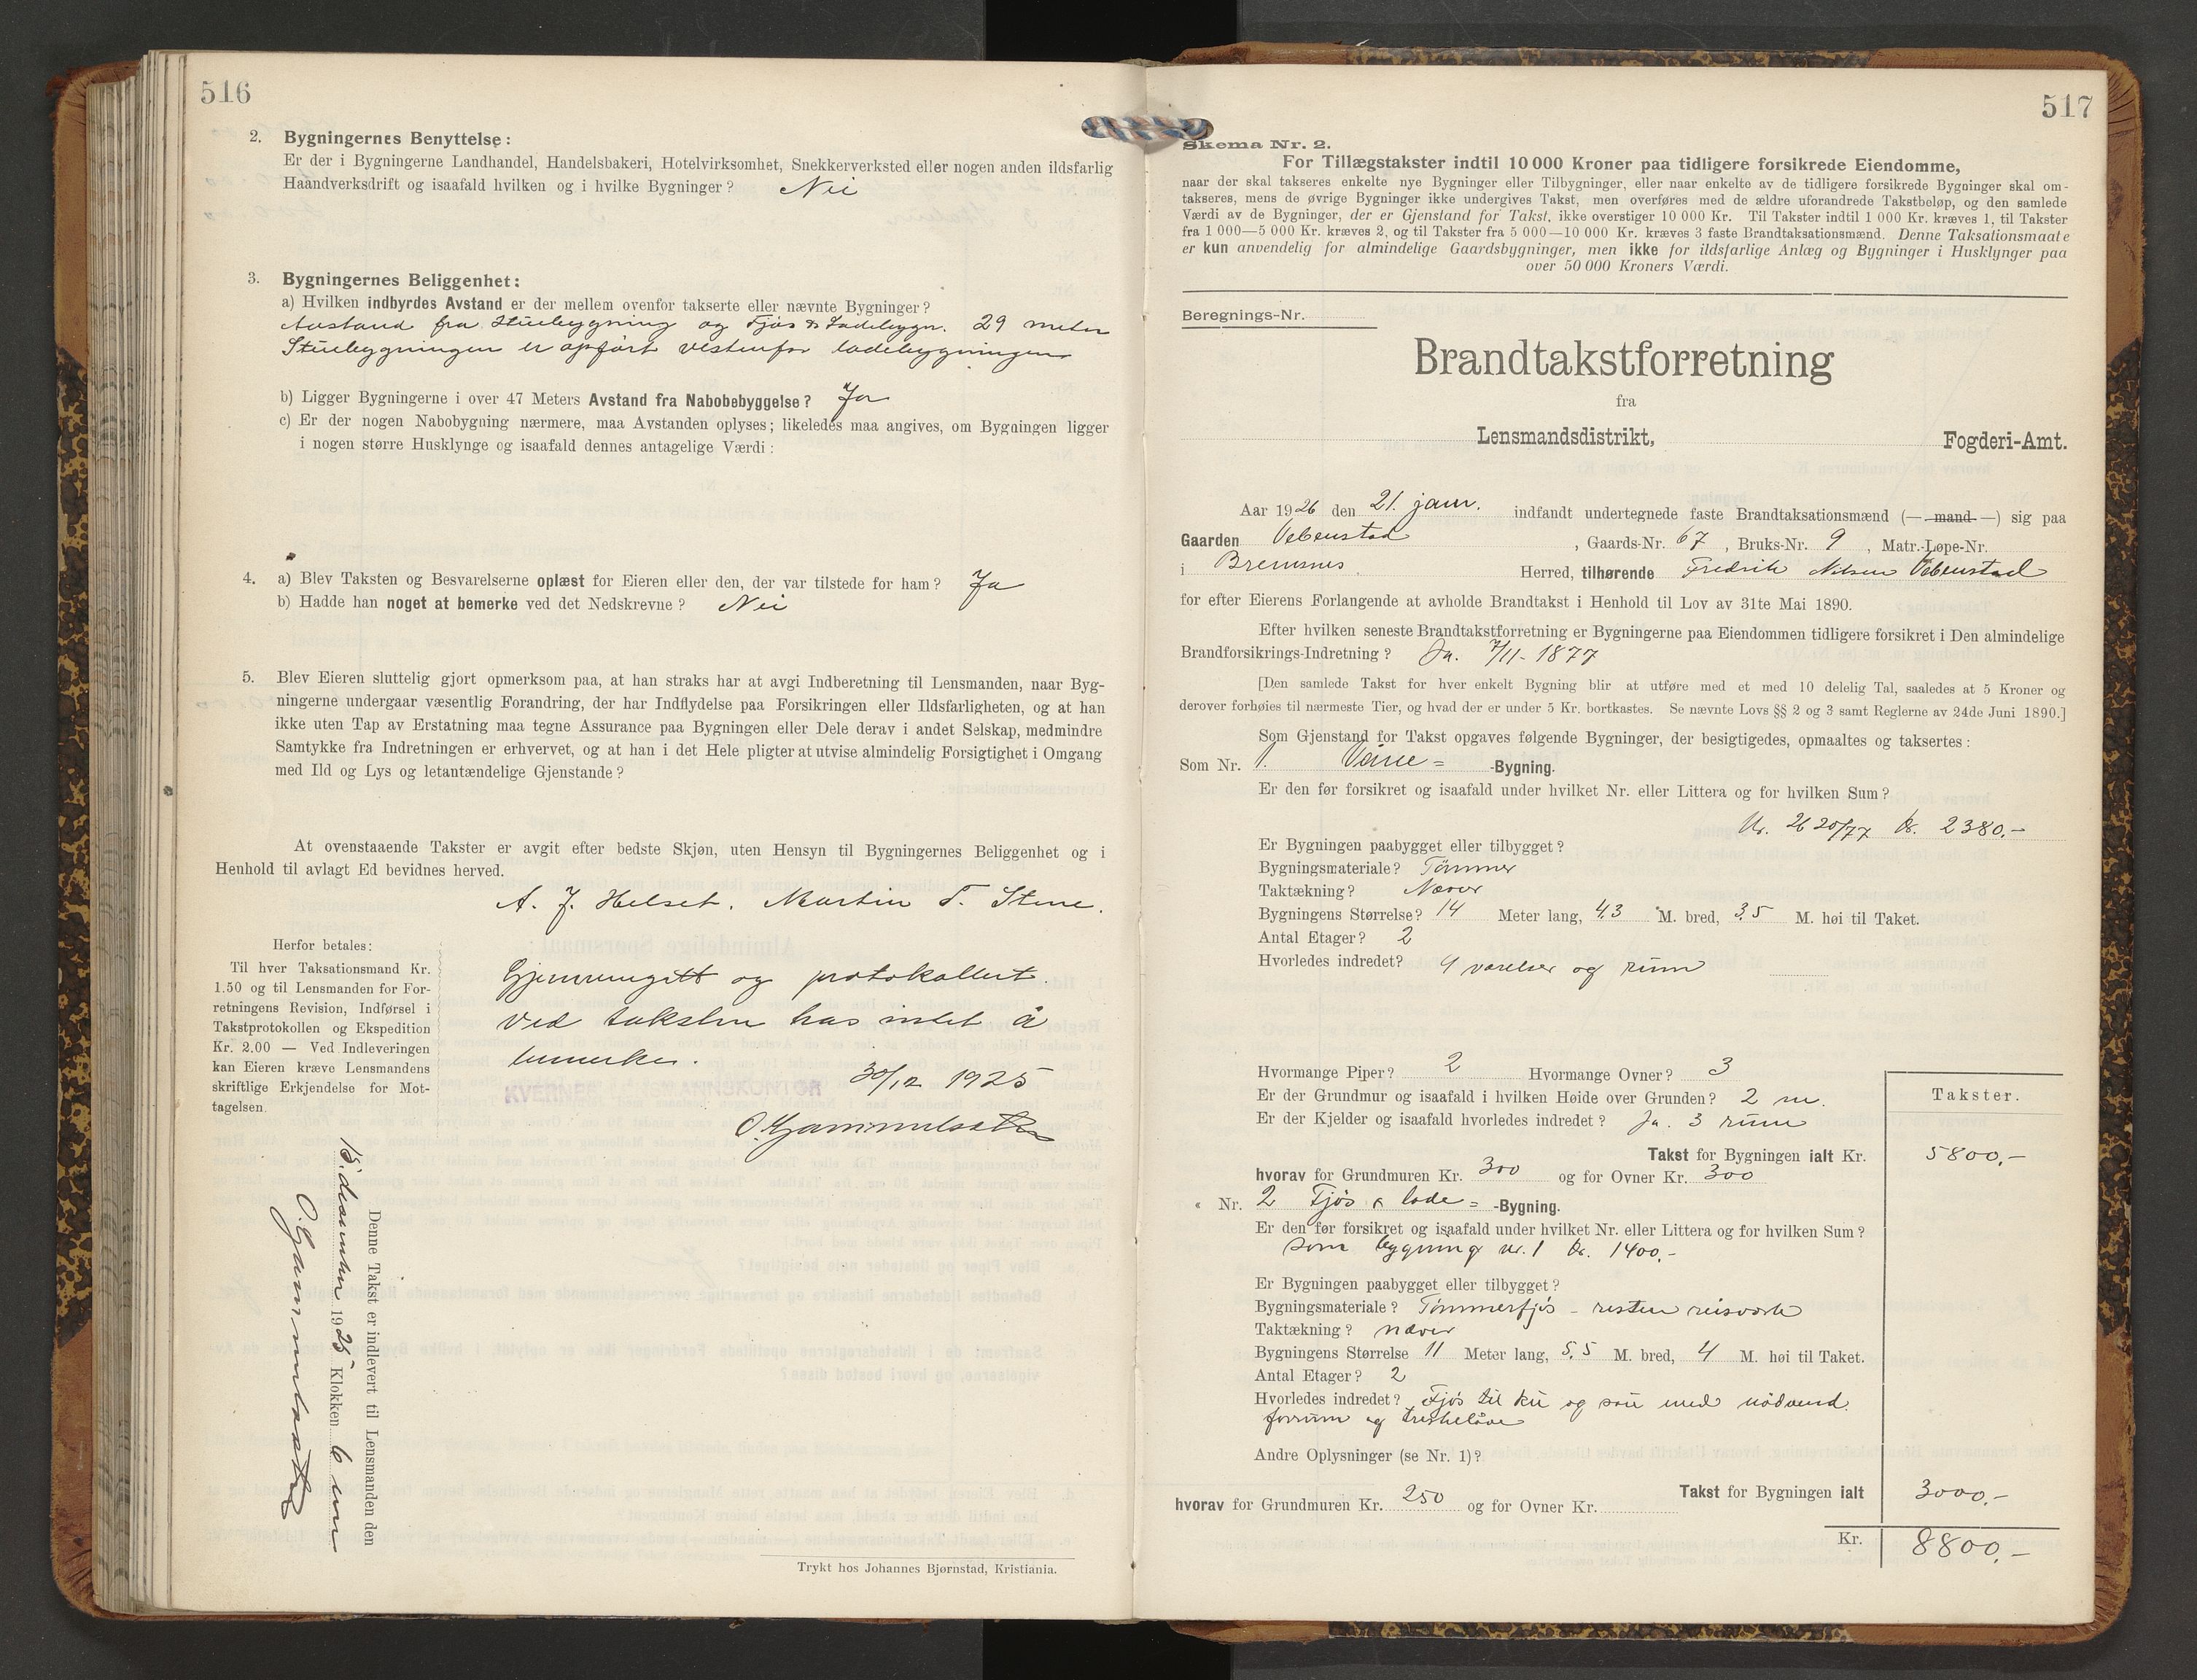 516
2. Bygningernes Benyttelse:
Er der i Bygningerne Landhandel, Handelsbakeri, Hotelvirksomhet, Snekkerverksted eller nogen anden ildsfarlig
Haandverksdrift og isaafald hvilken og i hvilke Bygninger? Nei
3. Bygningernes Beliggenhet:
a) Hvilken indbyrdes Avstand er der mellem ovenfor takserte eller nævnte Bygninger?
Avstand fra Stuebygning og Fjøs & Ladebygn. 29 meter
Stuebygningen er opført vestenfor ladebygningen
b) Ligger Bygningerne i over 47 Meters Avstand fra Nabobebyggelse? Ja
c) Er der nogen Nabobygning nærmere, maa Avstanden oplyses; likeledes maa angives, om Bygningen ligger
i nogen større Husklynge og isaafald dennes antagelige Værdi:
4. a) Blev Taksten og Besvarelserne oplæst for Eieren eller den, der var tilstede for ham? Ja
b) Hadde han noget at bemerke ved det Nedskrevne? Nei
5. Blev Eieren sluttelig gjort opmerksom paa, at han straks har at avgi Indberetning til Lensmanden, naar Byg-
ningerne undergaar væsentlig Forandring, der har Indflydelse paa Forsikringen eller Ildsfarligheten, og at han
ikke uten Tap av Erstatning maa tegne Assurance paa Bygningen eller Dele derav i andet Selskap, medmindre
Samtykke fra Indretningen er erhvervet, og at han i det Hele pligter at utvise almindelig Forsigtighet i Omgang
med Ild og Lys og letantændelige Gjenstande?
At ovenstaaende Takster er avgit efter bedste Skjøn, uten Hensyn til Bygningernes Beliggenhet og i
Henhold til avlagt Ed bevidnes herved.
A. J. Helset. Martin T. Stene.
Herfor betales:
Til hver Taksationsmand Kr.
1.50 og til Lensmanden for For-
retningens Revision, Indførsel i
Takstprotokollen og Ekspedition
Kr. 2.00 — Ved Indleveringen
kan Eieren kræve Lensmandens
skriftlige Erkjendelse for Mot-
tagelsen.
Gjennemgått og protokollert.
Ved taksten has intet å
bemerke.
30/12 1925
KVERNES LENSMANNSKONTOR
O. Gammelsæter
Denne Takst er indlevert til Lensmanden den
15. desember 1925 Klokken 6 em
O. Gammelsæter
Trykt hos Johannes Bjørnstad, Kristiania.
517
Skema Nr. 2.
For Tillægstakster indtil 10 000 Kroner paa tidligere forsikrede Eiendomme,
naar der skal takseres enkelte nye Bygninger eller Tilbygninger, eller naar enkelte av de tidligere forsikrede Bygninger skal om-
takseres, mens de øvrige Bygninger ikke undergives Takst, men overføres med de ældre uforandrede Takstbeløp, og den samlede
Værdi av de Bygninger, der er Gjenstand for Takst, ikke overstiger 10 000 Kr. Til Takster indtil 1 000 Kr. kræves 1, til Takster
fra 1 000—5 000 Kr. kræves 2, og til Takster fra 5 000—10 000 Kr. kræves 3 faste Brandtaksationsmænd. Denne Taksationsmaate
er kun anvendelig for almindelige Gaardsbygninger, men ikke for ildsfarlige Anlæg og Bygninger i Husklynger paa
over 50 000 Kroners Værdi.
Beregnings-Nr.
Brandtakstforretning
fra
Lensmandsdistrikt, Fogderi-Amt.
Aar 1926 den 21. janr. indfandt undertegnede faste Brandtaksationsmænd (— mand —) sig paa
Gaarden Vebenstad, Gaards-Nr. 67, Bruks-Nr. 9, Matr.-Løpe-Nr.
i Bremsnes Herred, tilhørende Fredrik Nilsen Vebenstad
for efter Eierens Forlangende at avholde Brandtakst i Henhold til Lov av 31te Mai 1890.
Efter hvilken seneste Brandtakstforretning er Bygningerne paa Eiendommen tidligere forsikret i Den almindelige
Brandforsikrings-Indretning? Ja. 7/11-1877
[Den samlede Takst for hver enkelt Bygning blir at utføre med et med 10 delelig Tal, saaledes at 5 Kroner og
derover forhøies til nærmeste Tier, og hvad der er under 5 Kr. bortkastes. Se nævnte Lovs §§ 2 og 3 samt Reglerne av 24de Juni 1890.]
Som Gjenstand for Takst opgaves følgende Bygninger, der besigtigedes, opmaaltes og taksertes:
Som Nr. 1. -Bygning.
Er den før forsikret og isaafald under hvilket Nr. eller Littera og for hvilken Sum?
Nr. 2620/77 Kr. 2380.-
Er Bygningen paabygget eller tilbygget?
Bygningsmateriale? Tømmer
Taktækning? Næver
Bygningens Størrelse? 14 Meter lang, 4.3 M. bred, 3.5 M. høi til Taket.
Antal Etager? 2
Hvorledes indredet? 4 værelser og rum
Hvormange Piper? 2 Hvormange Ovner? 3
Er der Grundmur og isaafald i hvilken Høide over Grunden? 2 m.
Er der Kjelder og isaafald hvorledes indredet? Ja. 3 rum
Takster.
Takst for Bygningen ialt Kr. 5800.-
hvorav for Grundmuren Kr. 300 og for Ovner Kr. 300
« Nr. 2 Fjøs & lade= -Bygning.
Er den før forsikret og isaafald under hvilket Nr. eller Littera og for hvilken Sum?
som bygning nr. 1 kr. 1400.-
Er Bygningen paabygget eller tilbygget?
Bygningsmateriale? Tømmerfjøs - resten reisverk
Taktækning? næver
Bygningens Størrelse 11 Meter lang, 5.5 M. bred, 4 M. høi til Taket.
Antal Etager? 2
Hvorledes indredet? Fjøs til ku og sau med nødvend.
forrum og treskelåve
Andre Oplysninger (se Nr. 1)?
Takst for Bygningen ialt 3000.-
hvorav for Grundmuren Kr. 250 og for Ovner Kr.
Kr. 8800.-